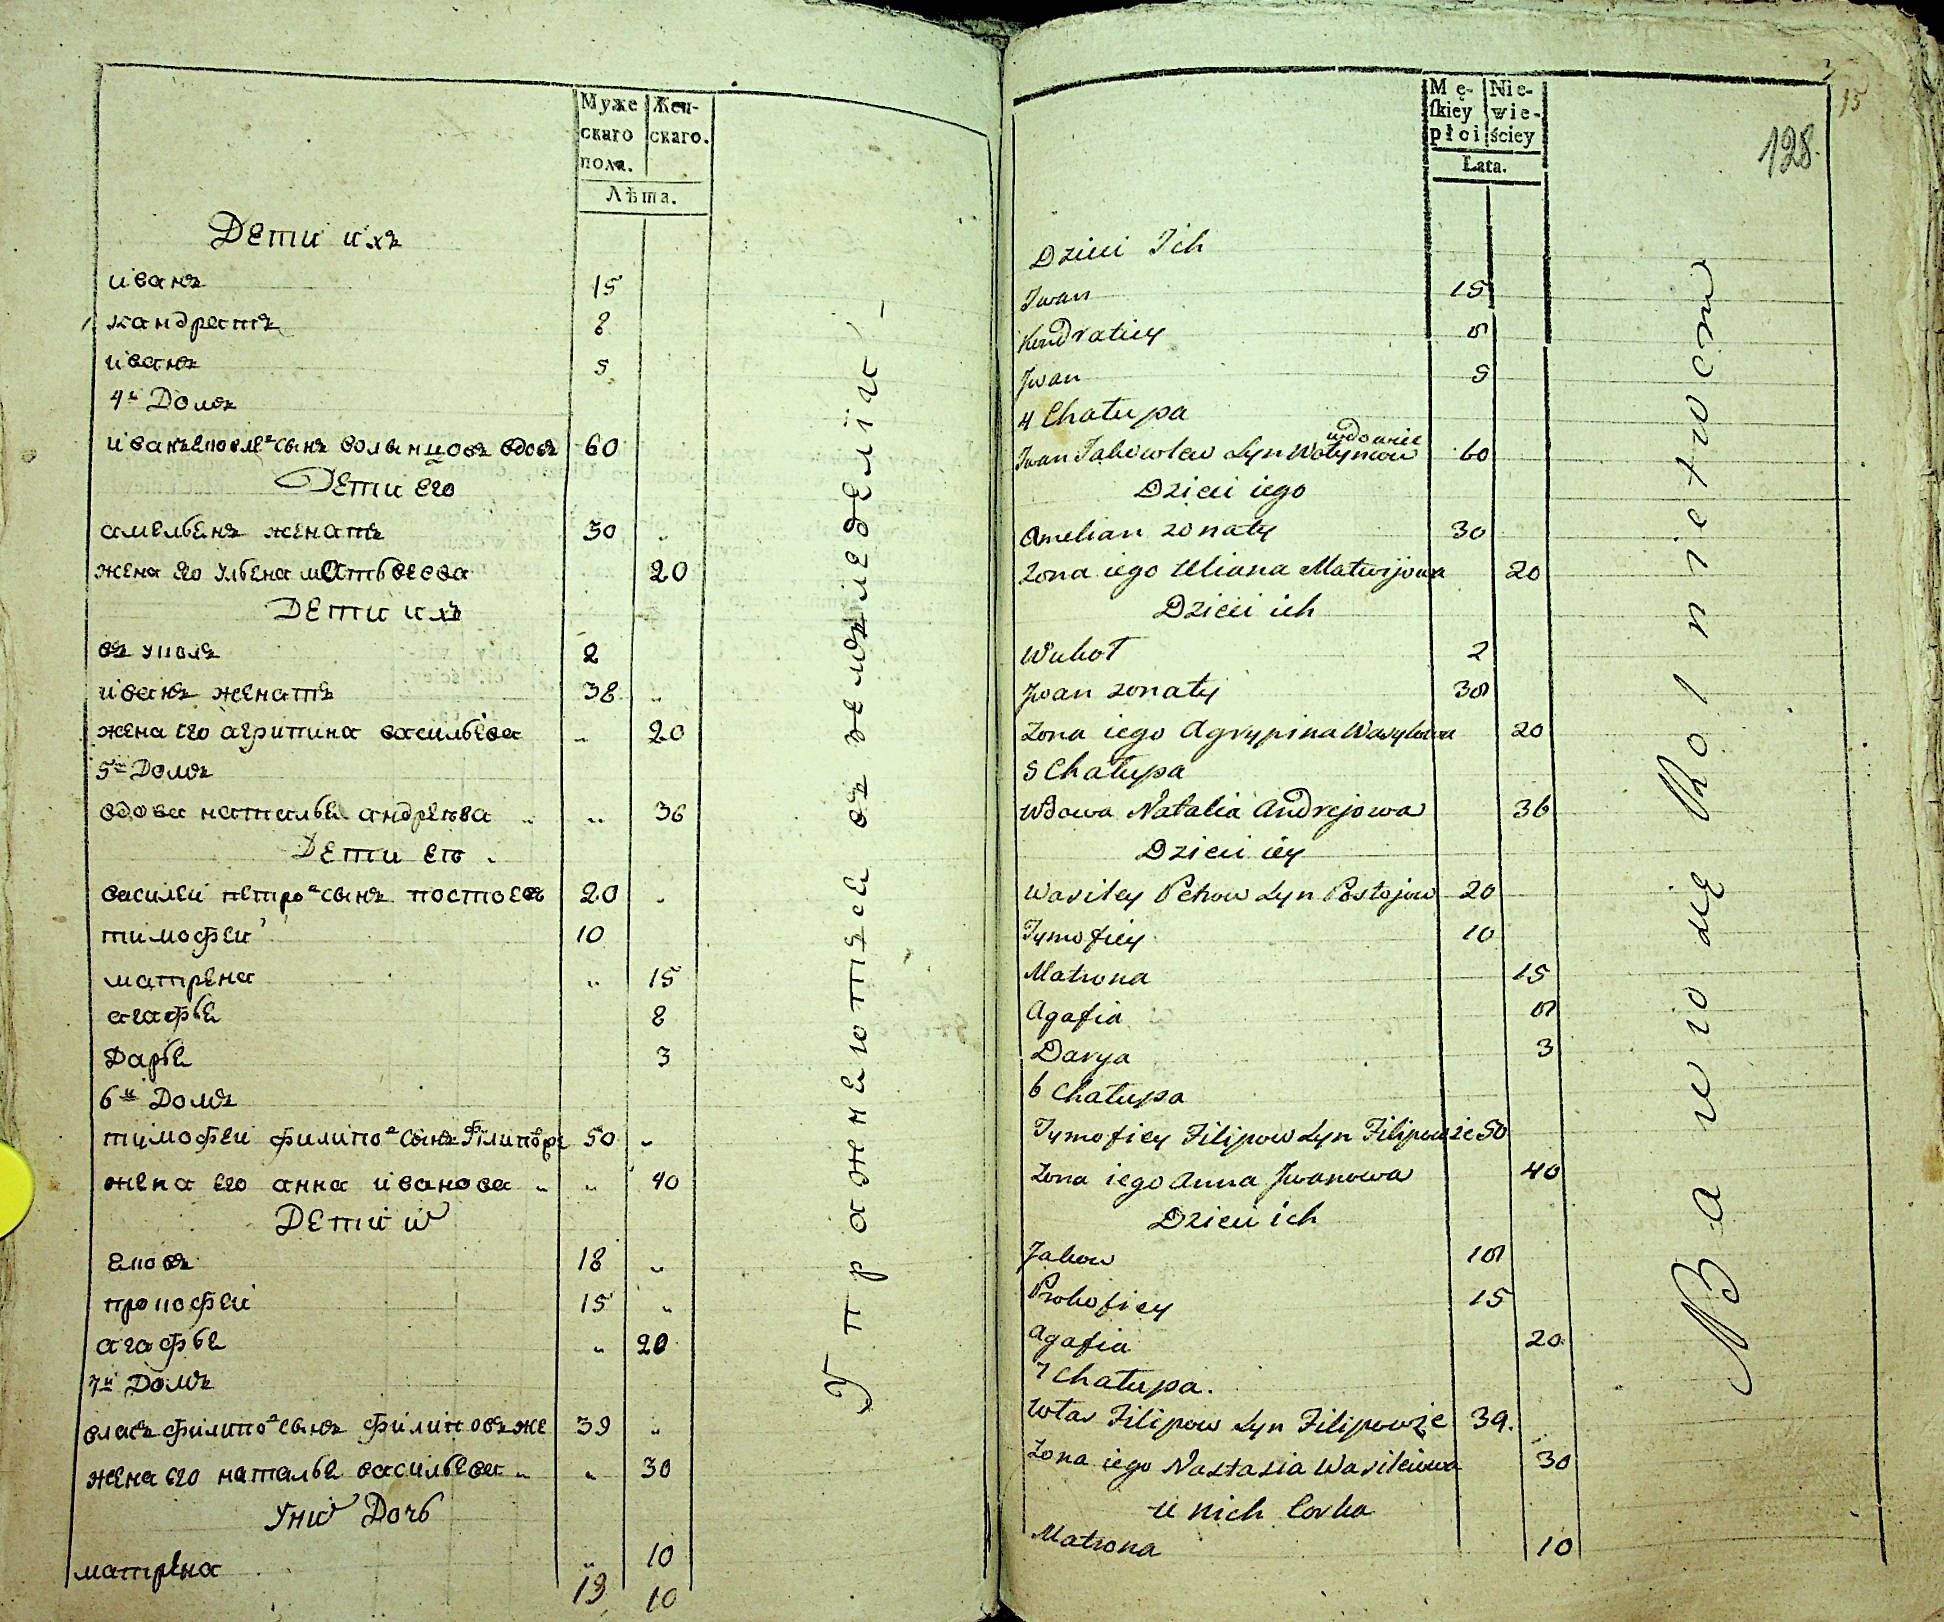 Муже Жен-
скаго скаго.
пола.
Лѣта.
Дети ихъ
иванъ 15
кандратъ 8
иванъ 5
4й Домъ
иванъ ековле сынъ волынцовъ вдовъ 60
Дети его
амельенъ женатъ 30 „
жена его ульена матьвеева 20
Дети ихъ
вакула 2
иванъ женатъ 38 „
жена его агрипина васильева „ 20
5й Домъ
вдова наталье андреява „ „ 36
Дети ево
василеи петровъ сынъ постоевъ 20 „
тимофеи 10
матрена „ 15
агафье 8
Дарье 3
6й Домъ
тимофеи филипо сынъ Филиповже 50 „
жена его анна иванова „ „ 40
Дети их
еково 18 „
прокофеи 15 „
агафье „ 20
7й Домъ
власъ филипо сынъ филиповъже 39 „
жена его наталье васильева „ „ 30
Уних Дочь
матрена „ 10
19 10
Упражнеютце въ земледеліи
Mę- Nie-
ſkiey wie-
płci ściey
Lata.
15
128.
Dzieci Ich
Iwan 15
Kondratiey 8
Jwan 5
4 Chałupa
wdowiec
Iwan Jakowlew Syn Wołyncow 60
Dzieci iego
Amelian zonaty 30
Zona iego Uliana Matwijowa 20
Dzieci ich
Wukoł 2
Jwan zonaty 38
Zona iego Agrypina Wasylowa 20
5 Chałupa
Wdowa Natalia Andrejowa 36
Dzieci iey
Wasiley Petrow Syn Postojow 20
Tymofiey 10
Matrona 15
Agafia 8
Darya 3
6 Chałupa
Tymofiey Filipow Syn Filipowże 50
Zona iego Anna Jwanowa 40
Dzieci ich
Jakow 18
Prokofiey 15
Agafia 20
7 Chałupa.
Włas Filipow Syn Filipowże 39.
Zona iego Nastasia Wasilewa 30
u nich Corka
Matrona 10
Bawio się Rolnictwem